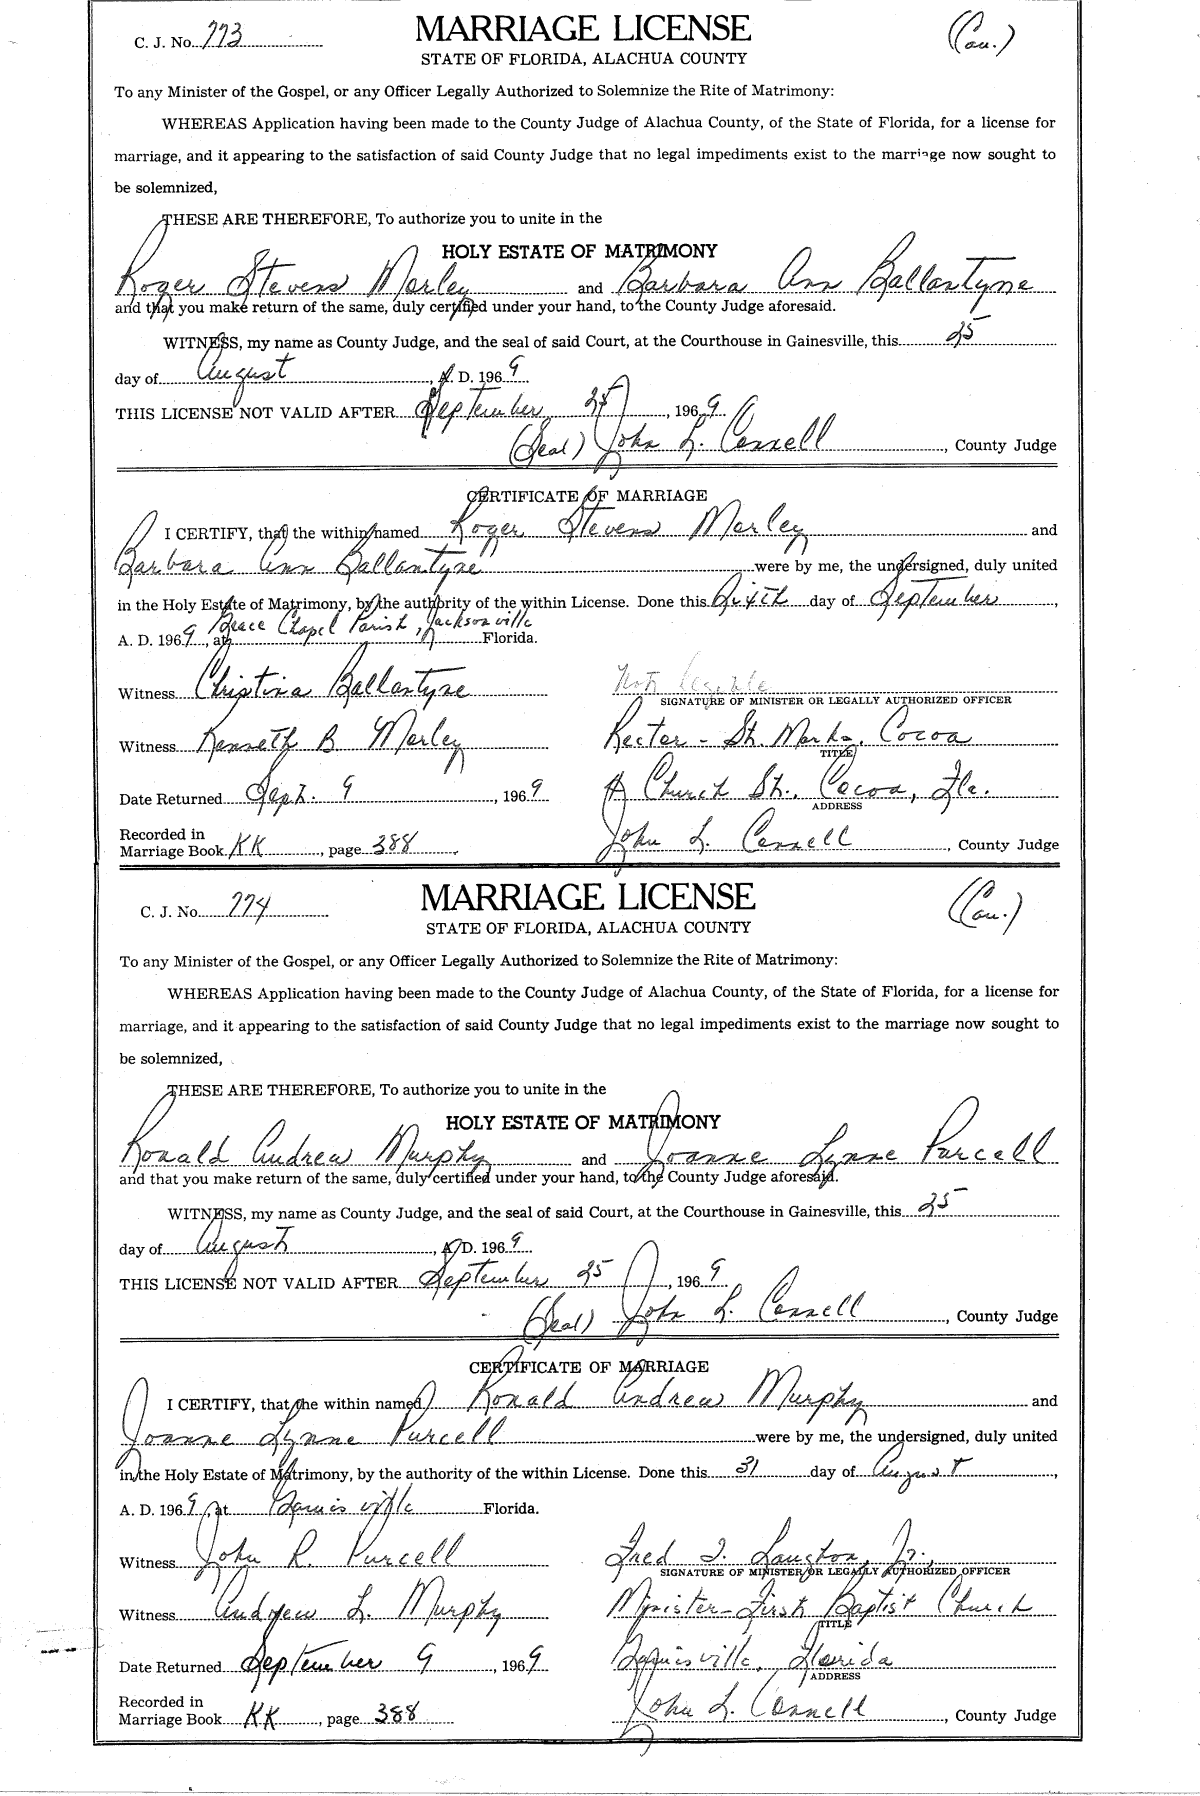 C. J. No. 773
MARRIAGE LICENSE
(Cau.)
STATE OF FLORIDA, ALACHUA COUNTY
To any Minister of the Gospel, or any Officer Legally Authorized to Solemnize the Rite of Matrimony:
WHEREAS Application having been made to the County Judge of Alachua County, of the State of Florida, for a license for
marriage, and it appearing to the satisfaction of said County Judge that no legal impediments exist to the marriage now sought to
be solemnized,
THESE ARE THEREFORE, To authorize you to unite in the
HOLY ESTATE OF MATRIMONY
Roger Stevens Morley and Barbara Ann Ballantyne
and that you make return of the same, duly certified under your hand, to the County Judge aforesaid.
WITNESS, my name as County Judge, and the seal of said Court, at the Courthouse in Gainesville, this 25
day of August, A. D. 1969
THIS LICENSE NOT VALID AFTER September 25, 1969
(Seal) John L. Connell, County Judge
CERTIFICATE OF MARRIAGE
I CERTIFY, that the within named Roger Stevens Morley and
Barbara Ann Ballantyne were by me, the undersigned, duly united
in the Holy Estate of Matrimony, by the authority of the within License. Done this Sixth day of September,
A. D. 1969, at Grace Chapel Parish, Jacksonville Florida.
Witness Christina Ballantyne Not Legible
SIGNATURE OF MINISTER OR LEGALLY AUTHORIZED OFFICER
Witness Kenneth B Morley Rector - St. Marks, Cocoa
TITLE
Date Returned Sept. 9, 1969 Church St., Cocoa, Fla.
ADDRESS
Recorded in
Marriage Book KK, page 388 John L. Connell, County Judge
C. J. No. 774
MARRIAGE LICENSE
(Cau.)
STATE OF FLORIDA, ALACHUA COUNTY
To any Minister of the Gospel, or any Officer Legally Authorized to Solemnize the Rite of Matrimony:
WHEREAS Application having been made to the County Judge of Alachua County, of the State of Florida, for a license for
marriage, and it appearing to the satisfaction of said County Judge that no legal impediments exist to the marriage now sought to
be solemnized,
THESE ARE THEREFORE, To authorize you to unite in the
HOLY ESTATE OF MATRIMONY
Ronald Andrew Murphy and Joanne Lynne Purcell
and that you make return of the same, duly certified under your hand, to the County Judge aforesaid.
WITNESS, my name as County Judge, and the seal of said Court, at the Courthouse in Gainesville, this 25
day of August, A. D. 1969
THIS LICENSE NOT VALID AFTER September 25, 1969
(Seal) John L. Connell, County Judge
CERTIFICATE OF MARRIAGE
I CERTIFY, that the within named Ronald Andrew Murphy and
Joanne Lynne Purcell were by me, the undersigned, duly united
in the Holy Estate of Matrimony, by the authority of the within License. Done this 31 day of August,
A. D. 1969, at Gainesville Florida.
Witness John R. Purcell Fred T. Laughon, Jr.,
SIGNATURE OF MINISTER OR LEGALLY AUTHORIZED OFFICER
Witness Andrew L. Murphy Minister-First Baptist Church
TITLE
Date Returned September 9, 1969 Gainesville, Florida
ADDRESS
Recorded in
Marriage Book KK, page 388 John L. Connell, County Judge